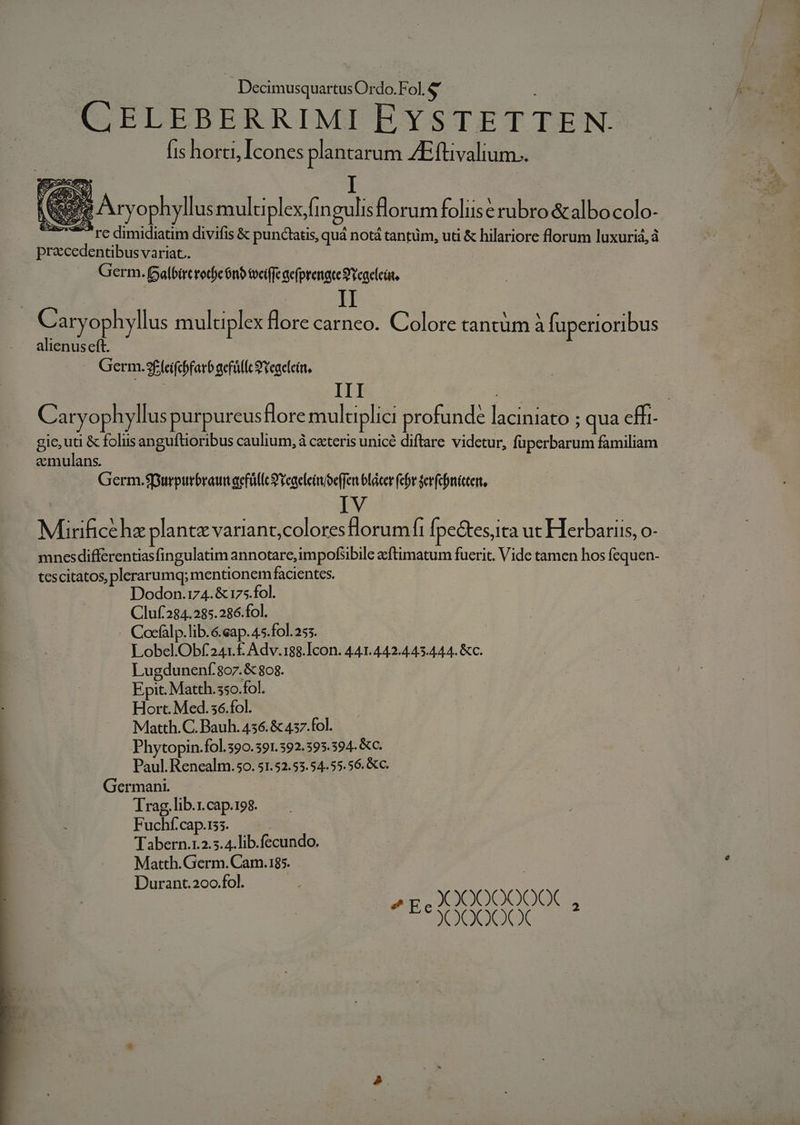 Decimusquartus Ordo. Fol. 5
CELEBERRIMI EYSTETTEN-
ſis horti, Icones plantarum Æſtivalium.
I
CAryophyllus multiplex, ſingulis florum foliis è rubro & albo colo-
re dimidiatim diviſis & punctatis, quâ notâ tantùm, uti & hilariore florum luxuriâ, à
præcedentibus variat.
Germ. Halbirt rothe vnd weiſſe geſprengte Negelein.
II
Caryophyllus multiplex flore carneo. Colore tantùm à ſuperioribus
alienus eſt.
Germ. Fleiſchfarb gefüllte Negelein.
III
Caryophyllus purpureus flore multiplici profundè laciniato ; qua effi-
gie, uti & foliis anguſtioribus caulium, à cæteris unicè diſtare videtur, ſuperbarum familiam
æmulans.
Germ. Purpurbraun gefüllte Negelein/deſſen bläter ſehr zerſchnitten.
IV
Mirificè hæ plantæ variant, colores florum ſi ſpectes, ita ut Herbariis, o-
mnes differentias ſingulatim annotare, impoſsibile æſtimatum fuerit. Vide tamen hos ſequen-
tes citatos, plerarumq; mentionem facientes.
Dodon. 174. & 175. fol.
Cluſ. 284. 285. 286. fol.
Cœſalp. lib. 6. cap. 45. fol. 253.
Lobel. Obſ. 241. f. Adv. 188. Icon. 441. 442. 443. 444. &c.
Lugdunenſ. 807. & 808.
Epit. Matth. 350. fol.
Hort. Med. 36. fol.
Matth. C. Bauh. 436. & 437. fol.
Phytopin. fol. 390. 391. 392. 393. 394. &c.
Paul. Renealm. 50. 51. 52. 53. 54. 55. 56. &c.
Germani.
Trag. lib. 1. cap. 198.
Fuchſ. cap. 133.
Tabern. 1. 2. 3. 4. lib. ſecundo.
Matth. Germ. Cam. 185.
Durant. 200. fol.
* Ee )( )( )( )( )( )( )( 2
)( )( )( )( )( )(